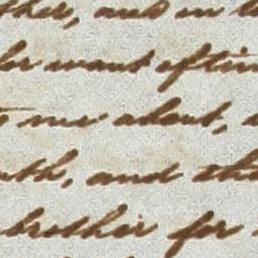 ther, and in
for want of tim
me adout,
uth, and th
brother for